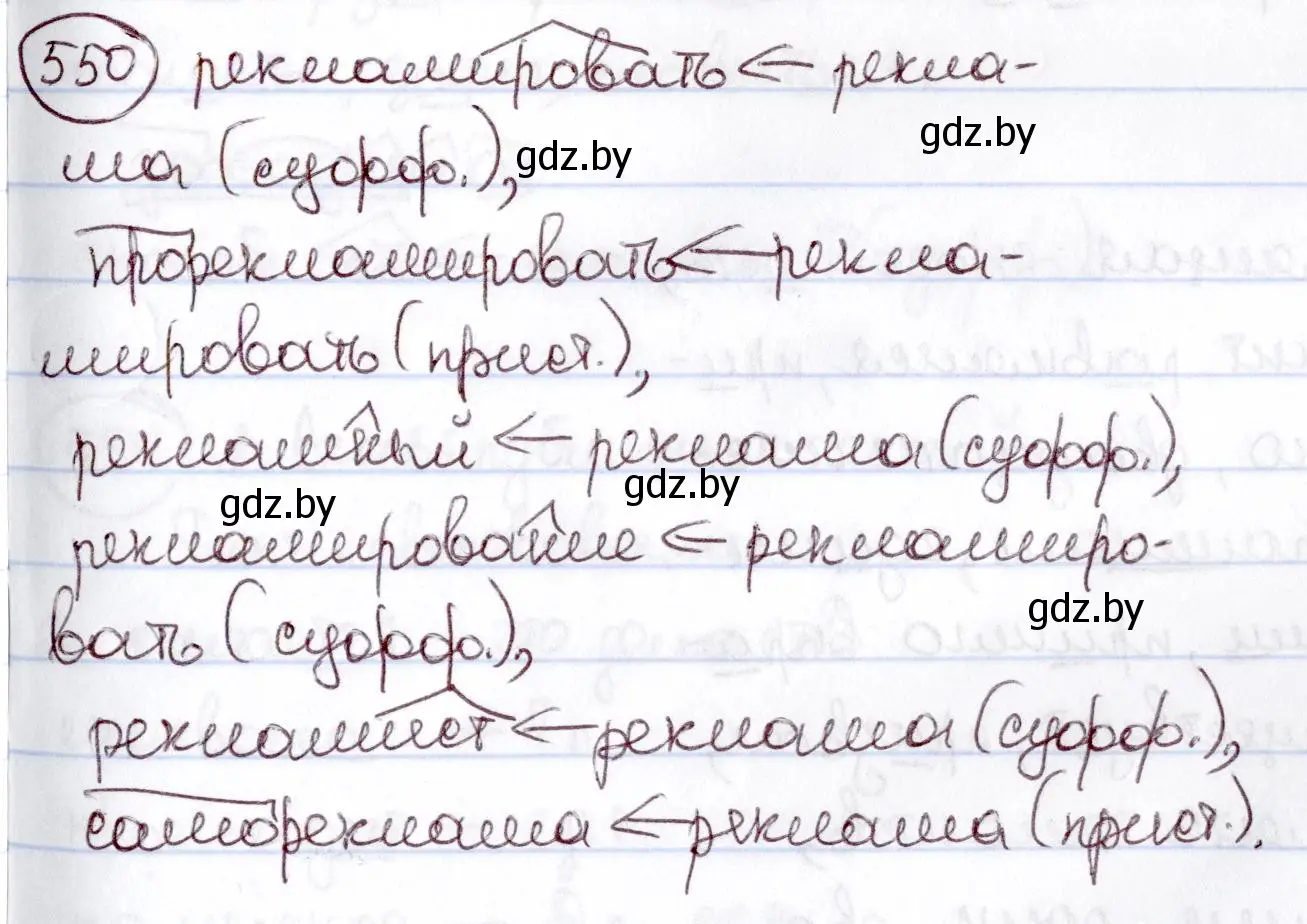 550 рекламировать ← рекла-
ма (суфф.),
прорекламировать ← рекла-
мировать (прист.),
рекламный ← реклама (суфф.),
рекламирование ← рекламиро-
вать (суфф.),
рекламист ← реклама (суфф.),
самореклама ← реклама (прист.).
gdz.by
gdz.by
gdz.by
gdz.by
gdz.by